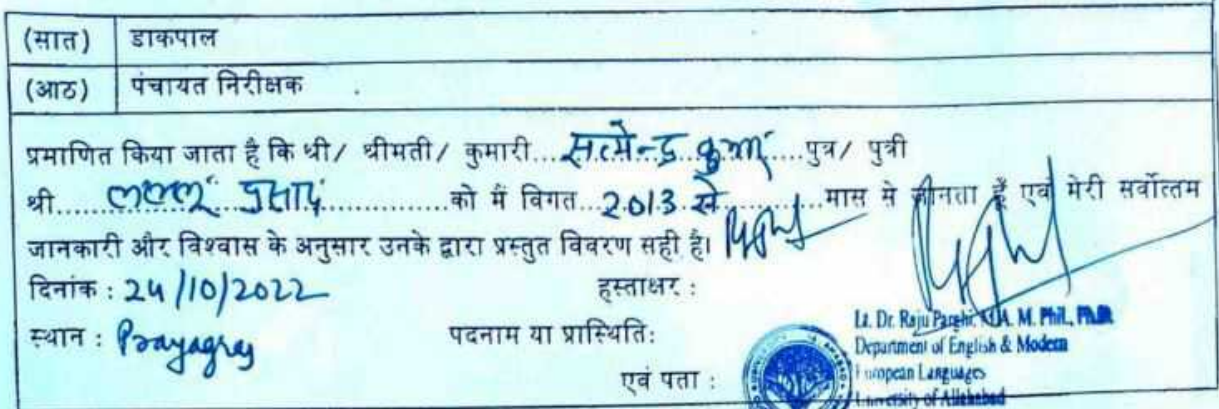 (सात) डाकपाल
(आठ) पंचायत निरीक्षक
प्रमाणित किया जाता है कि श्री/ श्रीमती/ कुमारी... सत्येन्द्र कुमार ...पुत्र/ पुत्री
श्री...... लल्लू प्रसाद ......को मैं विगत... 2013 से ......मास से जानता हूँ एवं मेरी सर्वोत्तम
जानकारी और विश्वास के अनुसार उनके द्वारा प्रस्तुत विवरण सही है।
दिनांक : 24/10/2022 हस्ताक्षर :
स्थान : Prayagraj पदनाम या प्रास्थिति:
एवं पता :
Lt. Dr. Raju Parghi, M. Phil., Ph.D.
Department of English & Modern
European Languages
University of Allahabad